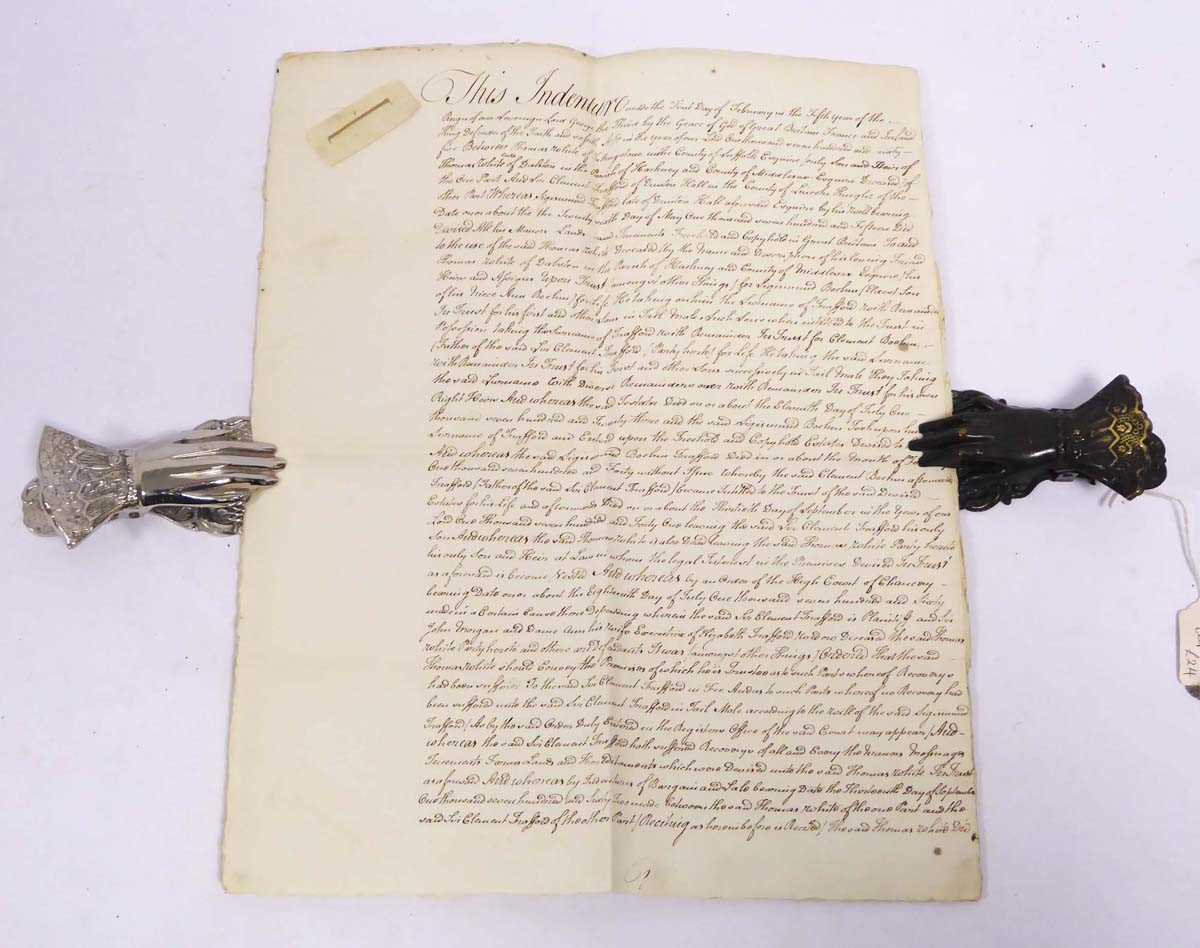 This Indenture Made the First Day of February in the Fifth Year of the
Reign of our Sovereign Lord George the Third by the Grace of God of Great Britain France and Ireland
King Defender of the Faith and so forth And in the year of our Lord One thousand seven hundred and sixty
five Between Thomas White of in the County of Suffolk Esquire only Son and Heir of
Thomas White late of Dalston in the Parish of Hackney and County of Middlesex Esquire Deceased of
the One Part And Sir Clement Trafford of Dunton Hall in the County of Lincoln Knight of the
other Part Whereas Sigismund Trafford late of Dunton Hall aforesaid Esquire by his Will bearing
Date on or about the the Seventh Day of May One thousand seven hundred and Fifteen Did
Devised All his Manors Lands and Tenements Freehold and Copyhold in Great Britain To and
to the use of the said Thomas White Deceased (by the Name and Description of his loving Friend
Thomas White of Dalston in the Parish of Hackney and County of Middlesex Esquire) his
Heirs and Assigns Upon Trust (amongst other Things) for Sigismund Boehm (Eldest Son
of his Niece Ann Boehm) for Life He taking on him the Surname of Trafford with Remainder
In Trust for his first and other Sons in Tail Male such Sons when intitled to the Trust in
Possession taking the Surname of Trafford with Remainder In Trust for Clement Boehm
(Father of the said Sir Clement Trafford (Party hereto) for Life He taking the said Surname
with Remainder In Trust for his first and other Sons successively in Tail Male They Taking
the said Surname With Diverse Remainders over with Remainder In Trust for his own
Right Heirs And whereas the said Testator Died on or about the Eleventh Day of July One
thousand seven hundred and Twenty three and the said Sigismund Boehm Takeing the
Surname of Trafford and Entred upon the Freehold and Copyhold Estates Devised to
And whereas the said Sigismund Boehm Trafford Died in or about the Month of
One thousand seven hundred and Forty without Issue whereby the said Clement Boehm afterwards
Trafford (Father of the said Sir Clement Trafford) became Intitled to the Trust of the said Devised
Estates for his Life and afterwards Died on or about the Thirtieth Day of September in the Year of our
Lord One Thousand seven hundred and Forty One leaving the said Sir Clement Trafford his only
Son And whereas the said Thomas White is also Dead leaving the said Thomas White Party hereto
his only Son and Heir at Law in whom the legal Interest in the Premises Devised In Trust
as aforesaid is become Vested And whereas by an Order of the High Court of Chancery
bearing Date on or about the Eighteenth Day of July One thousand seven hundred and Sixty
made in a Certain Cause there Depending wherein the said Sir Clement Trafford is Plaintiff and Sir
John Morgan and Dame Ann his wife Executrix of Elizabeth Trafford Widow Deceased the said Thomas
White Party hereto and others are Defendants It was (amongst other Things) Ordered That the said
Thomas White should Convey the Premises of which he is Trustee as to such Parts whereof Recoverys
had been suffered To the said Sir Clement Trafford in Fee And as to such Parts whereof no Recovery had
been suffered unto the said Sir Clement Trafford in Tail Male according to the Will of the said Sigismund
Trafford (As by the said Order Duly Entered in the Registers Office of the said Court may appear) And
whereas the said Sir Clement Trafford hath suffered Recoverys of all and Every the Manors Messuages
Tenements Farms Lands and Hereditaments which were Devised unto the said Thomas White In Trust
as aforesaid And whereas by Indentures of Bargain and Sale bearing Date the Thirteenth Day of September
One thousand seven hundred and Sixty made Between the said Thomas White of the one Part and the
said Sir Clement Trafford of the other Part (Reciting as hereinbefore is Recited) the said Thomas White Did
£24